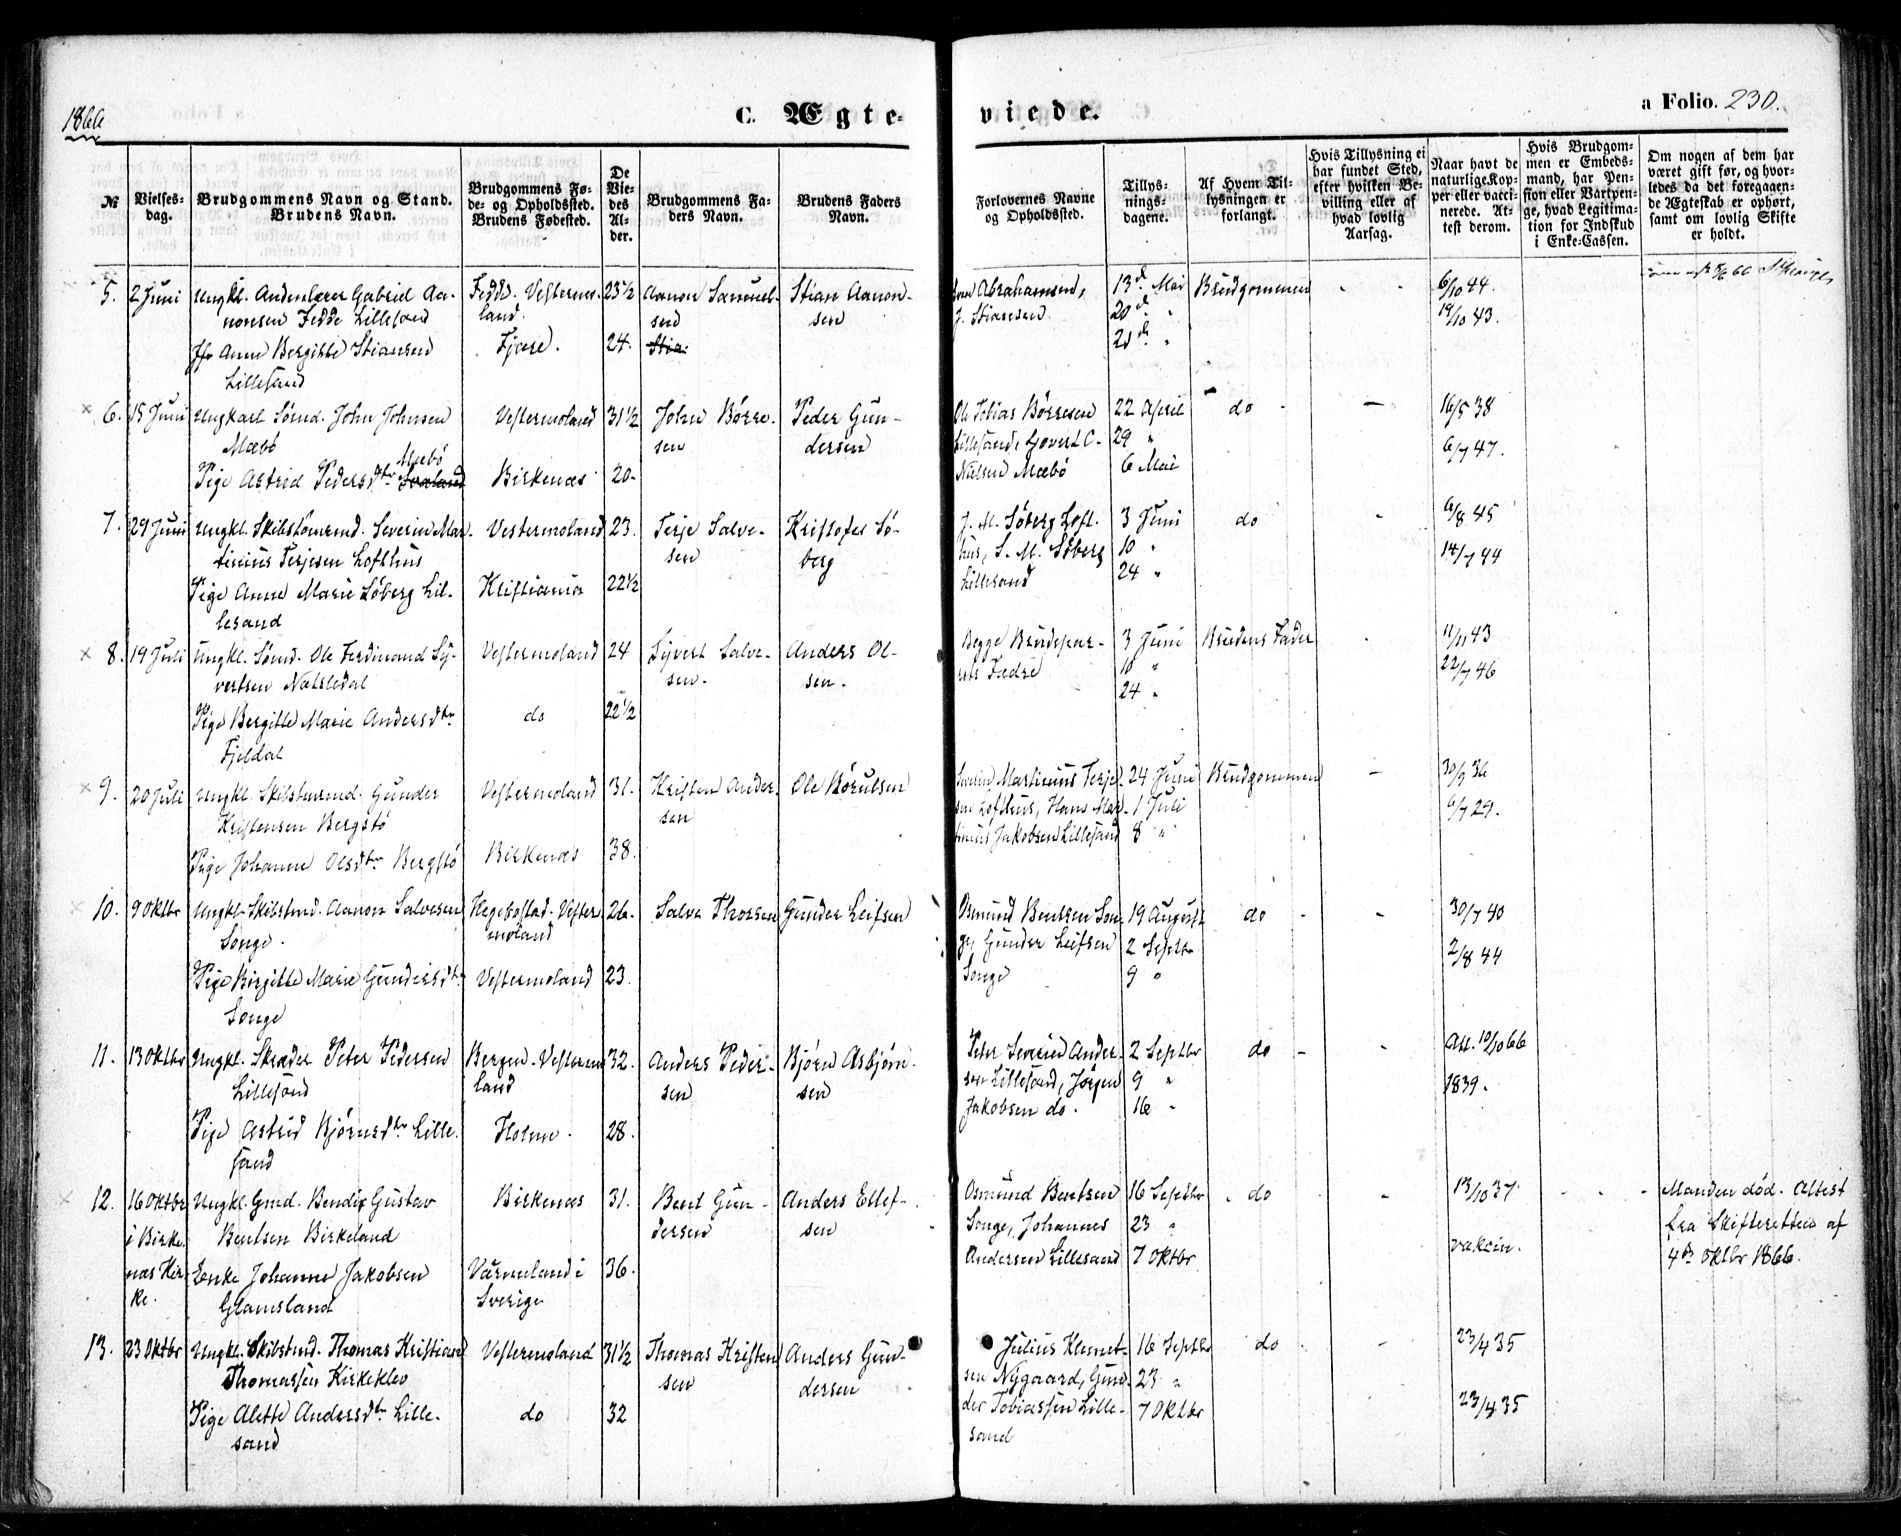 1866
C. Ægte-
viede.
a Folio. 230.
№
Vielses-
dag.
Brudgommens Navn og Stand.
Brudens Navn.
Brudgommens Fø-
de- og Opholdssted.
Brudens Fødested.
De
Vie-
des
Al-
der.
Brudgommens Fa-
ders Navn.
Brudens Faders
Navn.
Forlovernes Navne
og Opholdssted.
Tillys-
nings-
dagene.
Af Hvem Til-
lysningen er
forlangt.
Hvis Tillysning ei
har fundet Sted,
efter hvilken Be-
villing eller af
hvad lovlig
Aarsag.
Naar havt de
naturlige Kop-
per eller vacci-
nerede. At-
test derom.
Hvis Brudgom-
men er Embeds-
mand, har Pen-
sion eller Vartpen-
ge, hvad Legitima-
tion for Indskud
i Enke-Cassen.
Om nogen af dem har
været gift før, og hvor-
ledes da det foregaaen-
de Ægteskab er ophørt,
samt om lovlig Skifte
er holdt.
5. 2 Juni Ungkl. Gabriel Aa-
nonsen Fedde Lillesand
Jfr Anne Bergitte Stiansen
Lillesand
Fedde. Vestermo-
land.
Fjære.
23½
24.
Aanon Samuel-
sen
Stia-
Stian Aanon-
sen
Abrahamsen,
J. Stiansen
13d Mai
20d "
21d "
Brudgommen - -
6/10 44.
19/10 43.
6. 15 Juni Ungkarl Sømd. John Johnsen
Mæbø
Mæbø
Pige Astrid Pedersdtr Svaland
Vestermoland
Birkenæs
31½
20-
John Børre-
sen
Peder Gun-
dersen
Ole Tobias Børresen
Lillesand, Govert C-
Nielsen Mæbø
22 April
29 "
6 Mai
do - -
16/5 38
6/7 47.
7. 29 Juni Ungkl. Skibstømrmd. Severin Mar-
tinius Terjesen Lofthus
Pige Anne Marie Søberg Lil-
lesand
Vestermoland
Kristiania
23.
22½
Terje Salve-
sen
Kristofer Sø-
berg
J. M. Søberg Loft-
hus, S. M. Søberg
Lillesand
3 Juni
10 "
24 "
do -
6/8 45
14/7 44
8. 19 Juli Ungkl. Sømd. Ole Ferdinand Sy-
vertsen Natsledal
Pige Bergitte Marie Andersdtr
Fjeldal
Vestermoland
do
24
22½
Syvert Salve-
sen.
Anders Ol-
sen.
Begge Brudepar-
rets Fædre
3 Juni
10 "
24 "
Brudens Fader -
11/11 43
22/7 46
9. 20 Juli Ungkl. Skibstmrmd. Gunder
Kristensen Bergstø
Pige Johanne Olsdtr Bergstø
Vestermoland
Birkenæs
31.
38.
Kristen Ander-
sen
Ole Børulsen
Severin Martinius Terje-
sen Lofthus, Hans Mar-
tinius Jakobsen Lillesand
24 Juni
1 Juli
8 "
Brudgommen -
30/9 36
6/7 29.
10. 9 Oktbr Ungkl. Skibstmd. Aanon Salvesen
Songe.
Pige Birgitte Marie Gundersdtr
Songe
Hegebostad. Vester-
moland
Vestermoland
26.
23.
Salve Thorsen
Gunder Leifsen
Osmund Bentsen Son-
ge, Gunder Leifsen
Songe
19 August
2 Septbr
9 "
do - -
30/7 40
2/8 44
11. 13 Oktbr Ungkl. Skræder Peter Pedersen
Lillesand
Pige Astrid Bjørnsdtr Lille-
sand
Bergen. Vestermo-
land
Holme.
32.
28.
Anders Peder-
sen
Bjørn Asbjørn-
sen
Peter Severin Ander-
sen Lillesand, Jørgen
Jakobsen do.
2 Septbr
9 "
16 "
do - -
Att. 10/10 66
1839.
12. 16 Oktbr
i Birke-
næs Kir-
ke.
Ungkl. Gmd. Bendix Gustav
Bentsen Birkeland
Enke Johanne Jakobsen
Glamsland
Birkenæs
Värmeland i
Sverige
31.
36.
Bent Gun-
dersen
Anders Ellef-
sen
Osmund Bentsen
Songe, Johannes
Andersen Lillesand
16 Septbr
23 "
7 Oktbr
do -
13/10 37.
vakcin.
Manden død. Attest
fra Skifteretten af
4de Oktbr 1866.
13. 23 Oktbr Ungkl. Skibstmd. Thomas Kristian
Thomassen Kirkeklev
Pige Alette Andersdtr Lille-
sand
Vestermoland
do
31½
32
Thomas Kristen-
sen
Anders Gun-
dersen
Julius Klemet-
sen Nygaard, Gun-
der Tobiassen Lille-
sand
16 Septbr
23 "
7 Oktbr
do -
23/4 35
23/4 35